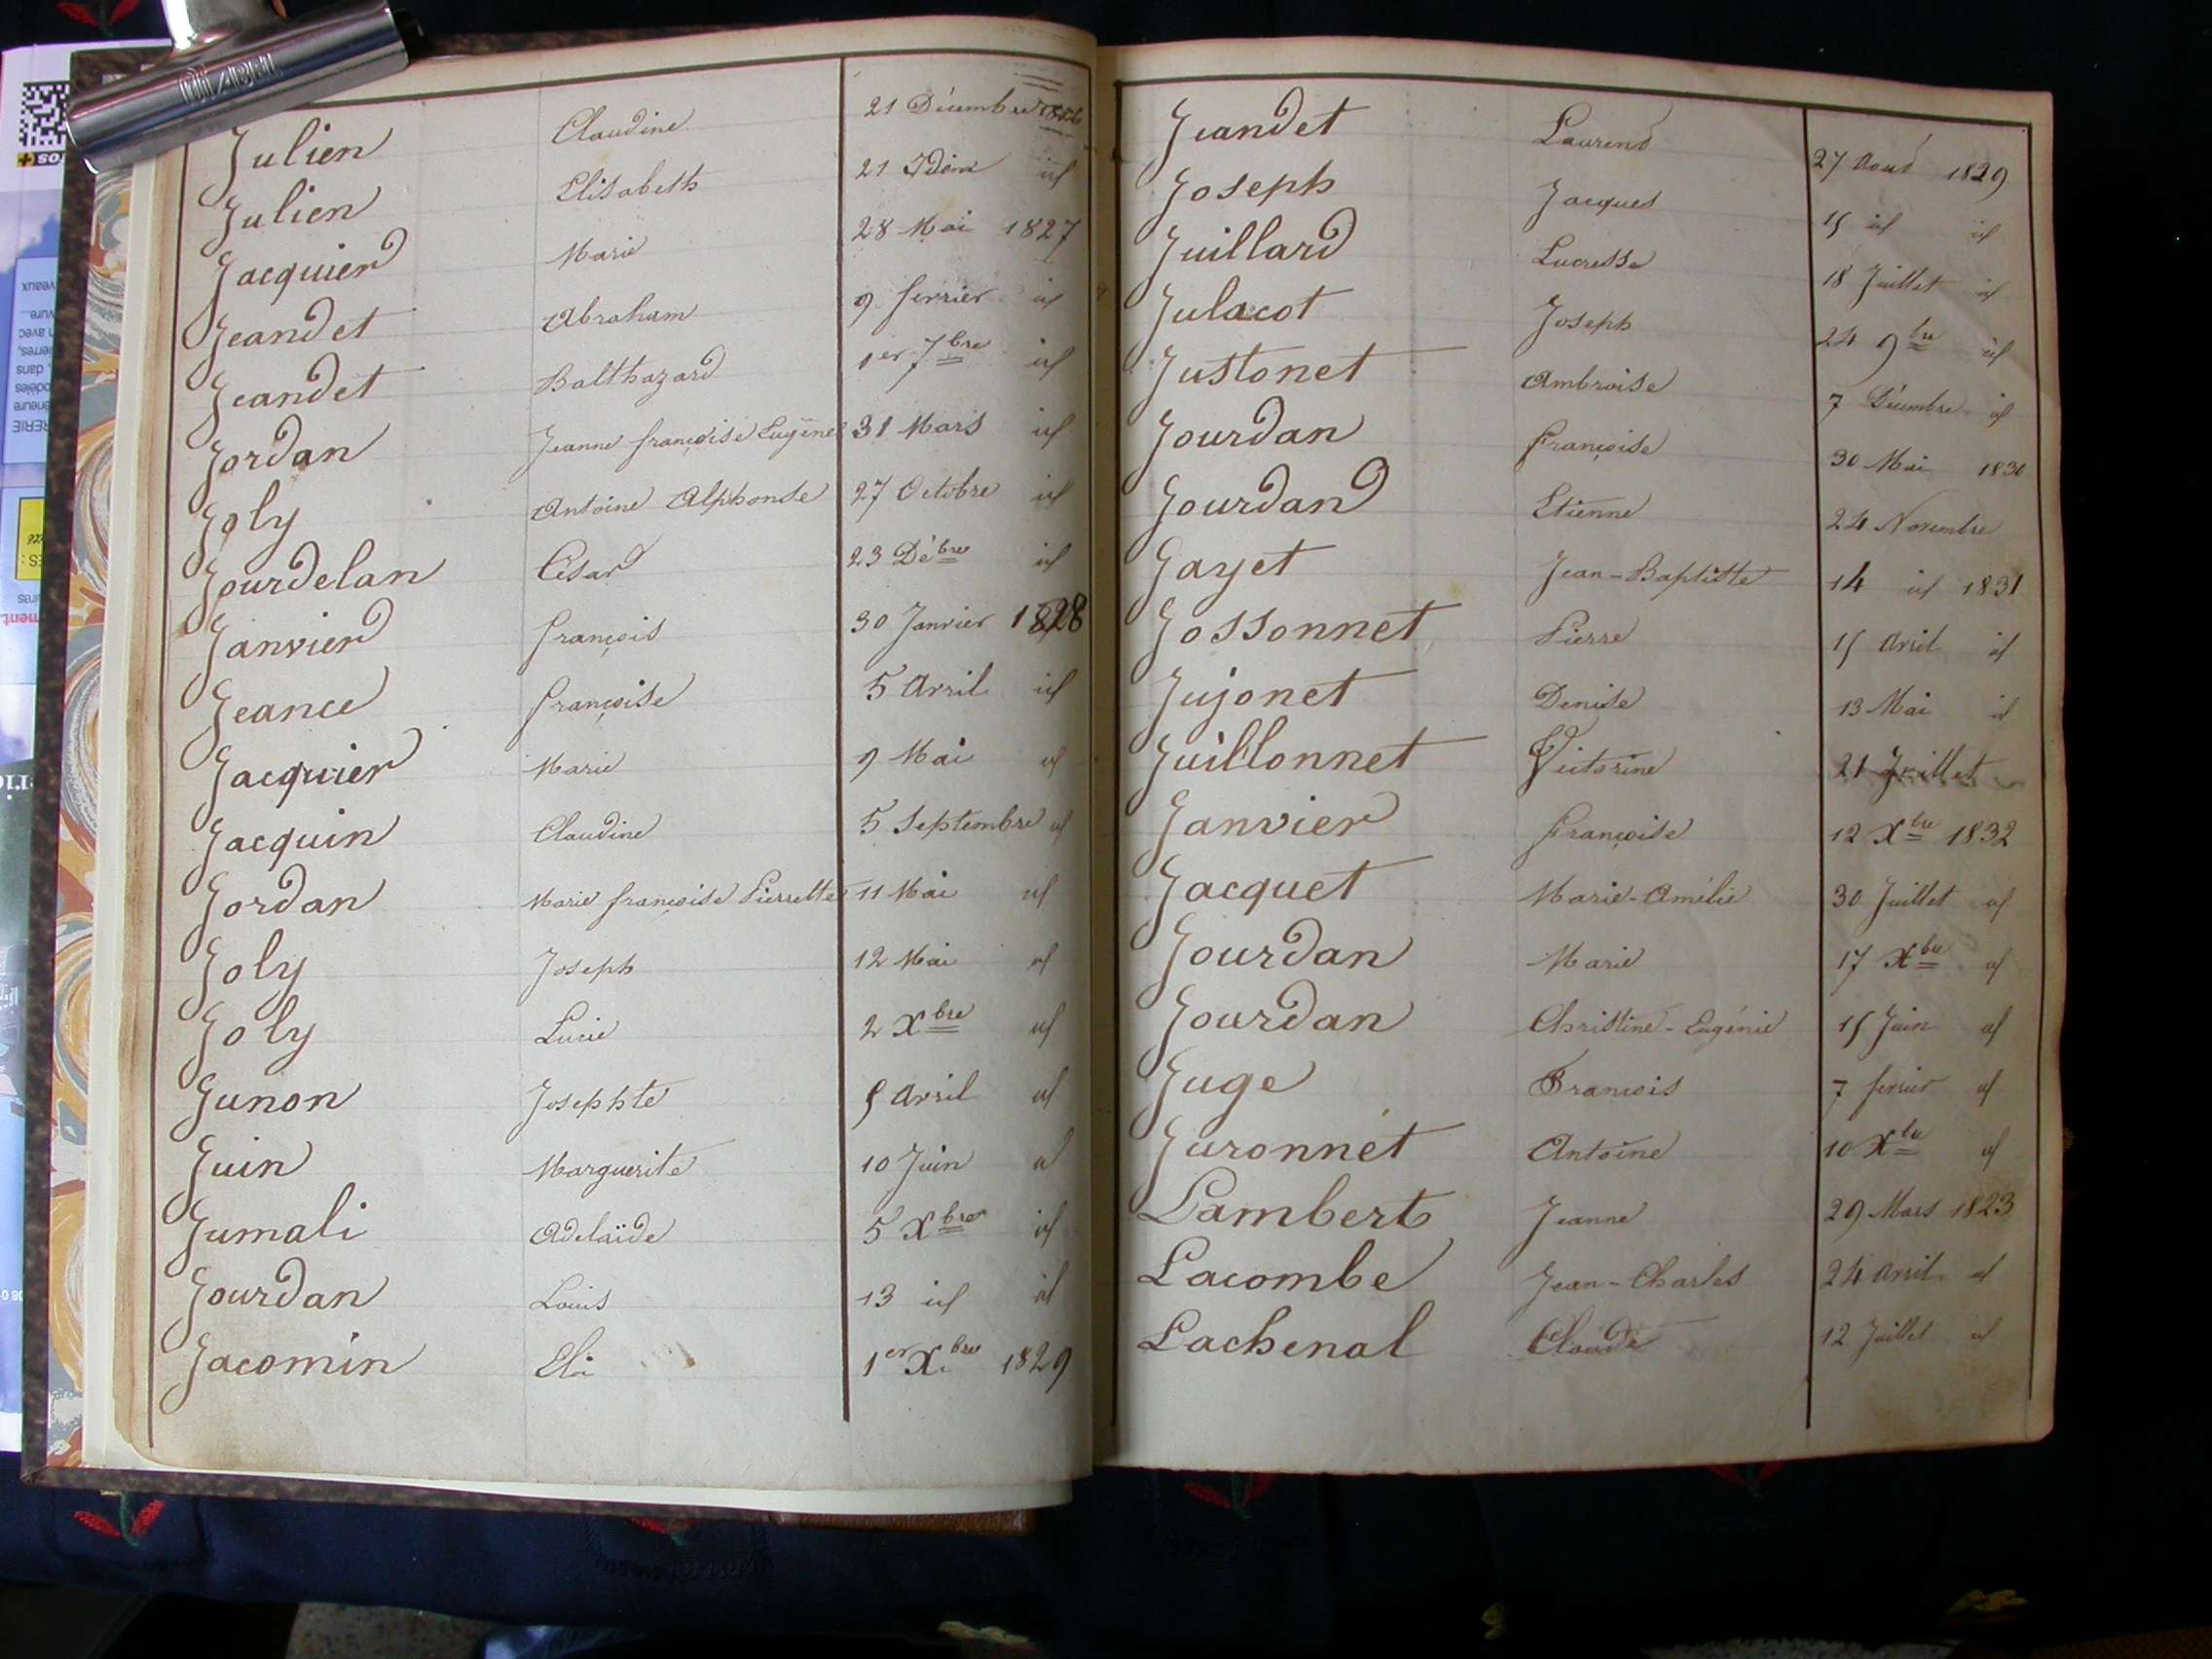 DIABEL
Julien Claudine 21 Décembre 1826
Julien Elisabeth 21 Idem id
Jacquier Marie 28 Mai 1827
Jeandet Abraham 9 fevrier id
Jeandet Balthazard 1er 7bre id
Jordan Jeanne françoise Eugène 31 Mars id
Joly Antoine Alphonse 27 Octobre id
Jourdelan César 23 Débre id
Janvier françois 30 Janvier 1828
Jeance françoise 5 Avril id
Jacquier Marie 9 Mai id
Jacquin Claudine 5 Septembre id
Jordan Marie françoise Pierrette 11 Mai id
Joly Joseph 12 Mai id
Joly Lucie 2 Xbre id
Junon Josephte 5 Avril id
Juin Marguerite 10 Juin id
Jumali Adelaïde 5 Xbre id
Jourdan Louis 13 id id
Jacomin Eloi 1er Xbre 1829
Jeandet Laurent 27 Aout 1829
Joseph Jacques 15 id id
Juillard Lucresse 18 Juillet id
Julacot Joseph 24 9bre id
Justonet Ambroise 7 Décembre id
Jourdan françoise 30 Mai 1830
Jourdan Etienne 24 Novembre
Jayet Jean-Baptiste 14 id 1831
Jossonnet Pierre 15 Avril id
Jujonet Denise 13 Mai id
Juillonnet Victorine 21 Juillet
Janvier françoise 12 Xbre 1832
Jacquet Marie-Amélie 30 Juillet id
Jourdan Marie 17 Xbre id
Jourdan Christine-Eugénie 15 Juin id
Juge François 7 fevrier id
Juronnet Antoine 10 Xbre id
Lambert Jeanne 29 Mars 1823
Lacombe Jean-Charles 24 Avril id
Lachenal Claude 12 Juillet id